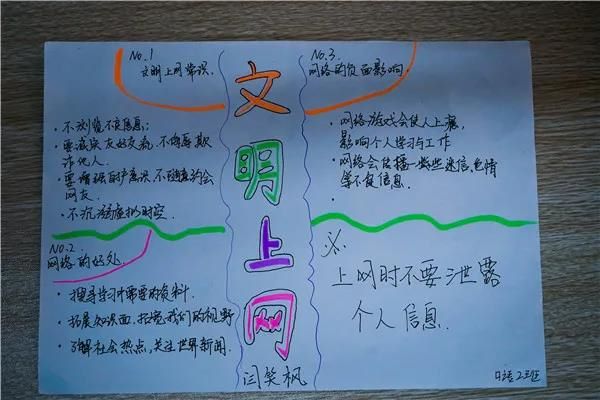 No.1
文明上网常识.
· 不浏览不良信息;
· 要诚实友好交流,不侮辱欺
诈他人.
· 要增强自护意识,不随意约会
网友.
· 不沉溺虚拟时空.
No.2.
网络的好处
· 搜寻学习所需要的资料.
· 拓展知识面,拓宽我们的视野
· 了解社会热点,关注世界新闻.
文
明
上
网
闫笑枫
No.3.
网络的负面影响.
· 网络游戏会使人上瘾,
影响个人学习与工作
· 网络会传播一些迷信,色情
等不良信息.
※.
上网时不要泄露
个人信息.
日语2班